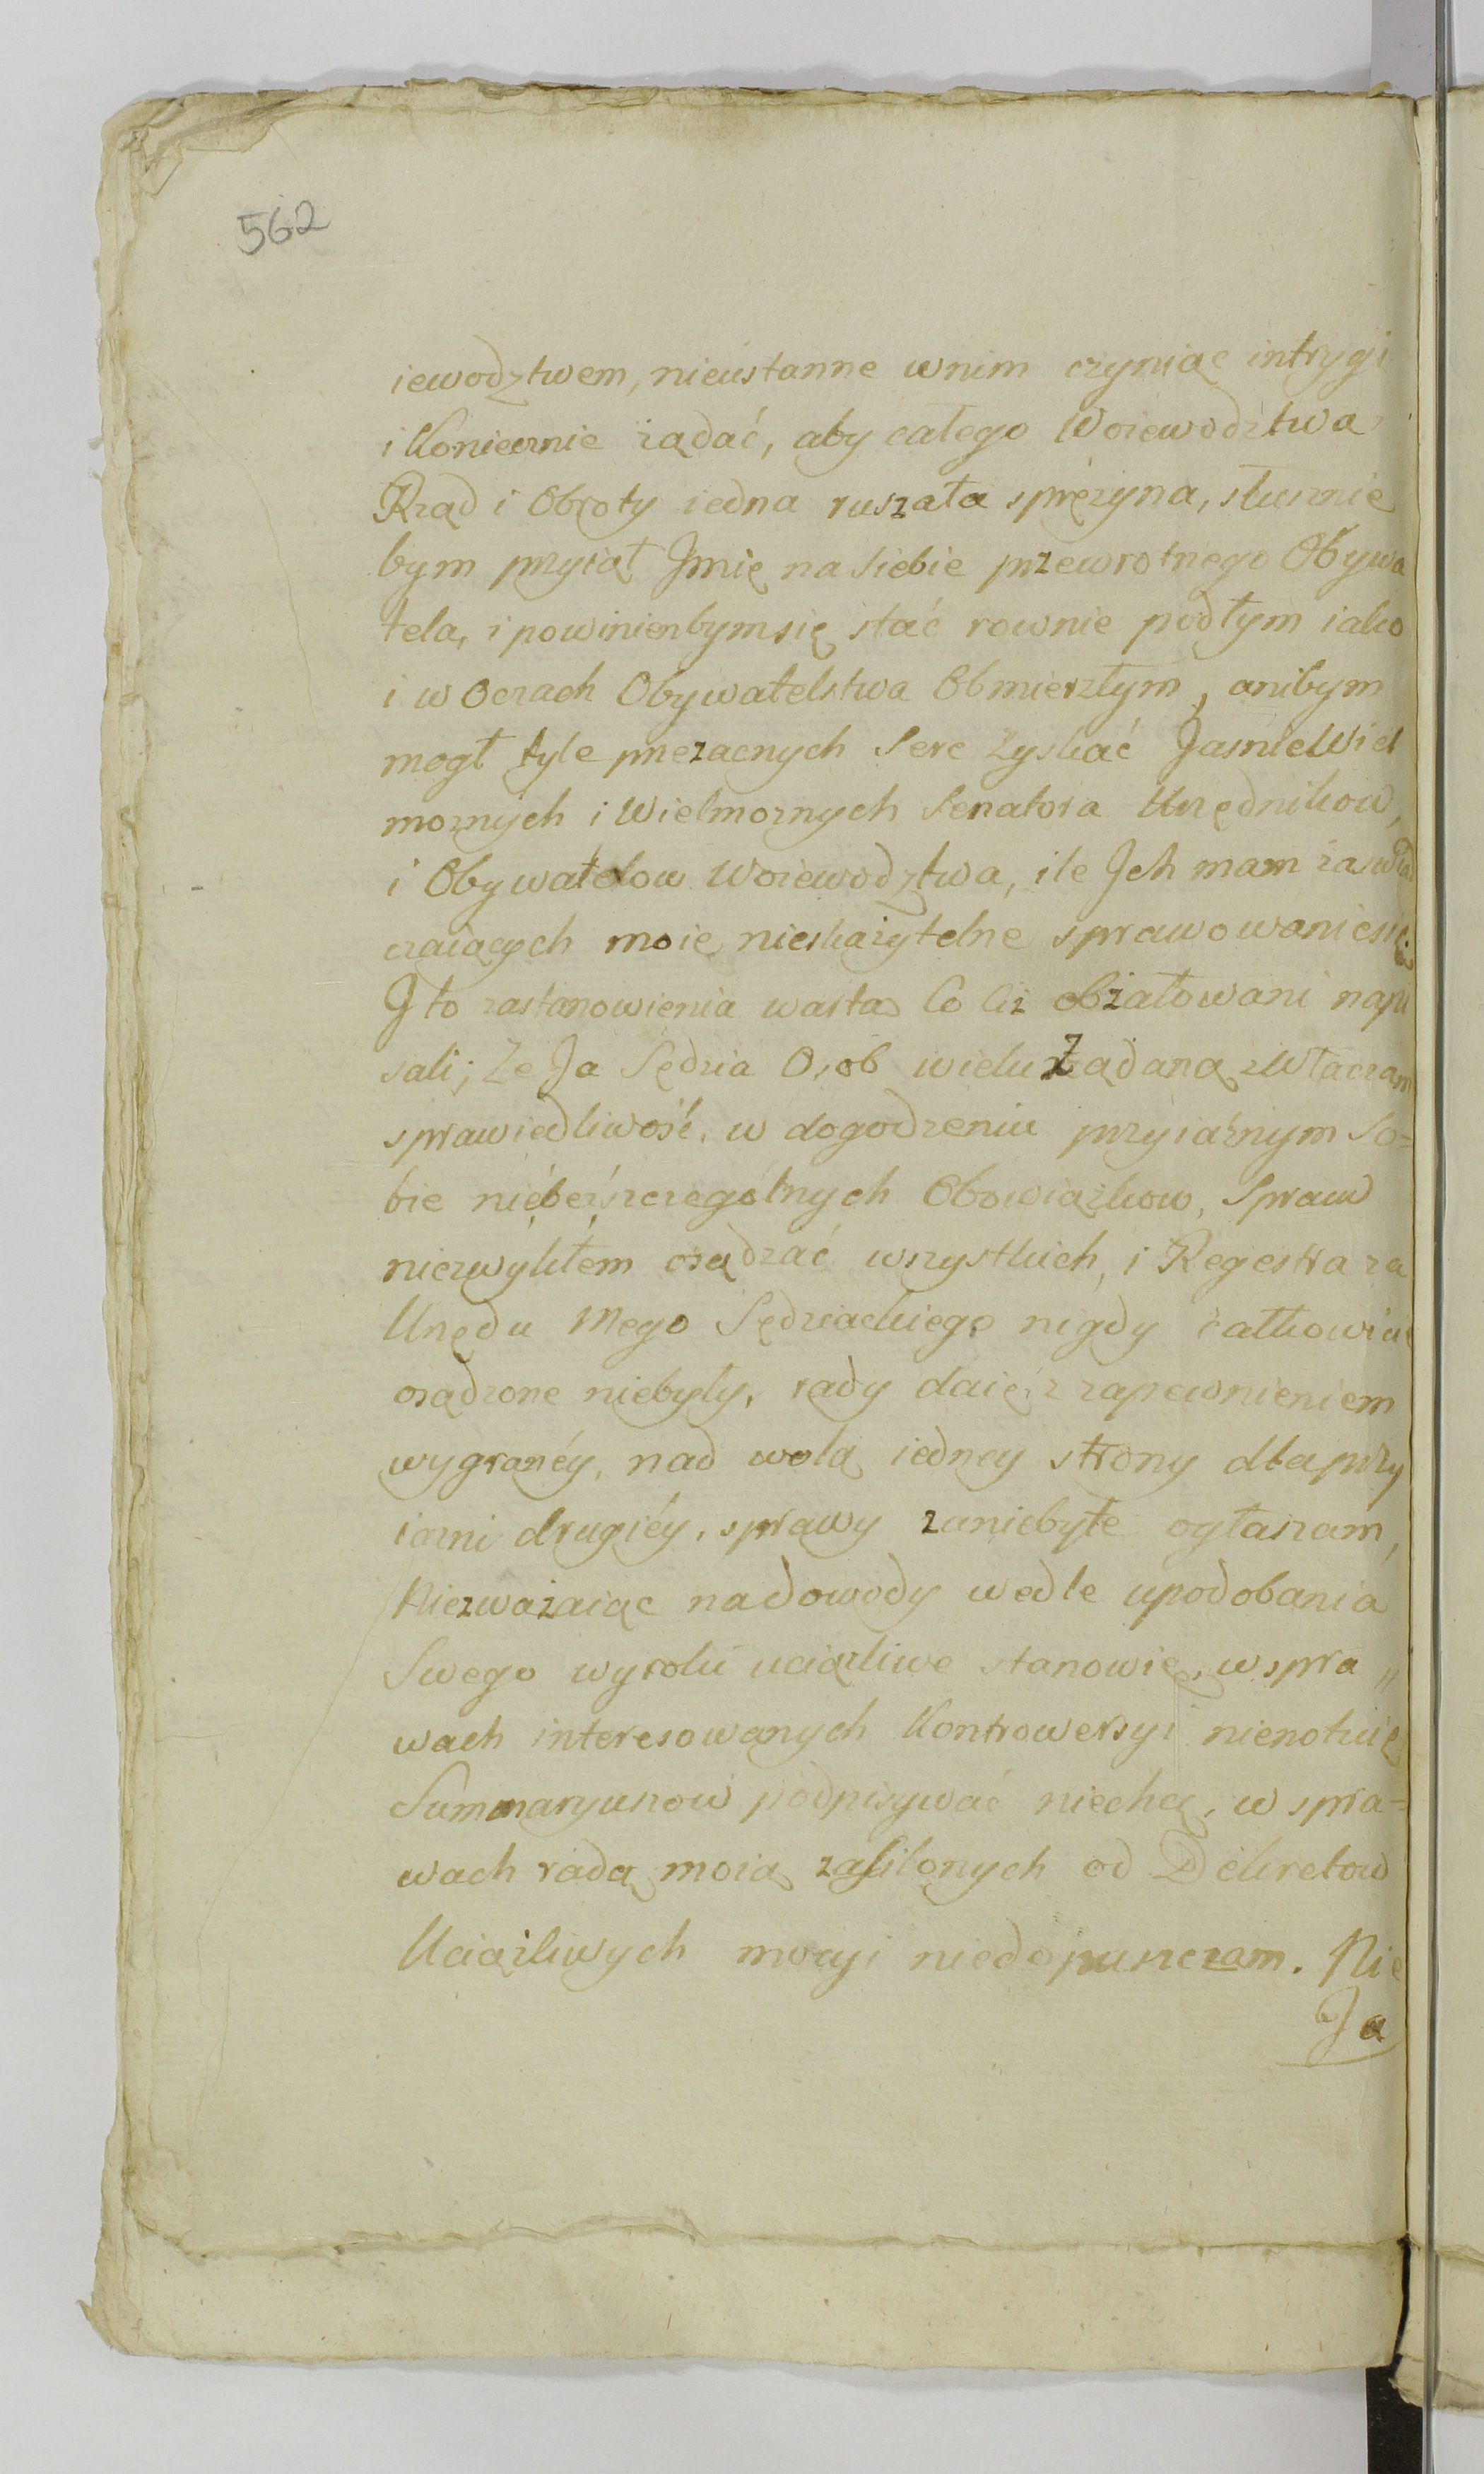 562
iewodztwem, nieustanne wnim czyniąc intrygi
i koniecznie żądać, aby całego Woiewodztwa
Rząd i Obroty iedna ruszała sprężyna, słusznie
bym przyiął Jmię na siebie przewrotnego Obywa
tela, i powinienbymsię stać rownie podłym iako
i w Oczach Obywatelstwa Obmierzłym, anibym
mogł tyle przezacnych Serc zyskać JasnieWiel
możnych i Wielmożnych Senatora Urzędnikow,
i Obywatelow Woiewodztwa, ile Jch mam zaswiad
czaiących moie nieskażytelne sprawowaniesię.
J to zastanowienia warta Co Ciż obżałowani napi
sali; Ze Ja Sędzia Osob wielu Ządaną zWłaczam
sprawiedliwość, w dogodzeniu przyiaźnym So=
bie niebeźszczegółnych Obowiązkow, Spraw
niezwykłem osądzać wszystkich, i Regestra za
Urzędu Mego Sędziackiego nigdy całkowicie
osądzone niebyły, rady daię z zapewnieniem
wygranéy, nad wolą iedney strony dla przy
iazni drugiéy, sprawy zaniebyłe ogłaszam,
Niezważaiąc nadowody wedle upodobania
Swego wyroki uciążliwe stanowię, w spra„
wach interesowanych Kontrowersyi nienotuię
Summaryuszow podpisywać niechcę, w spra=
wach radą moią zasilonych od Dekretow
Uciążliwych mocyi niedopuszczam. Nie
Ja